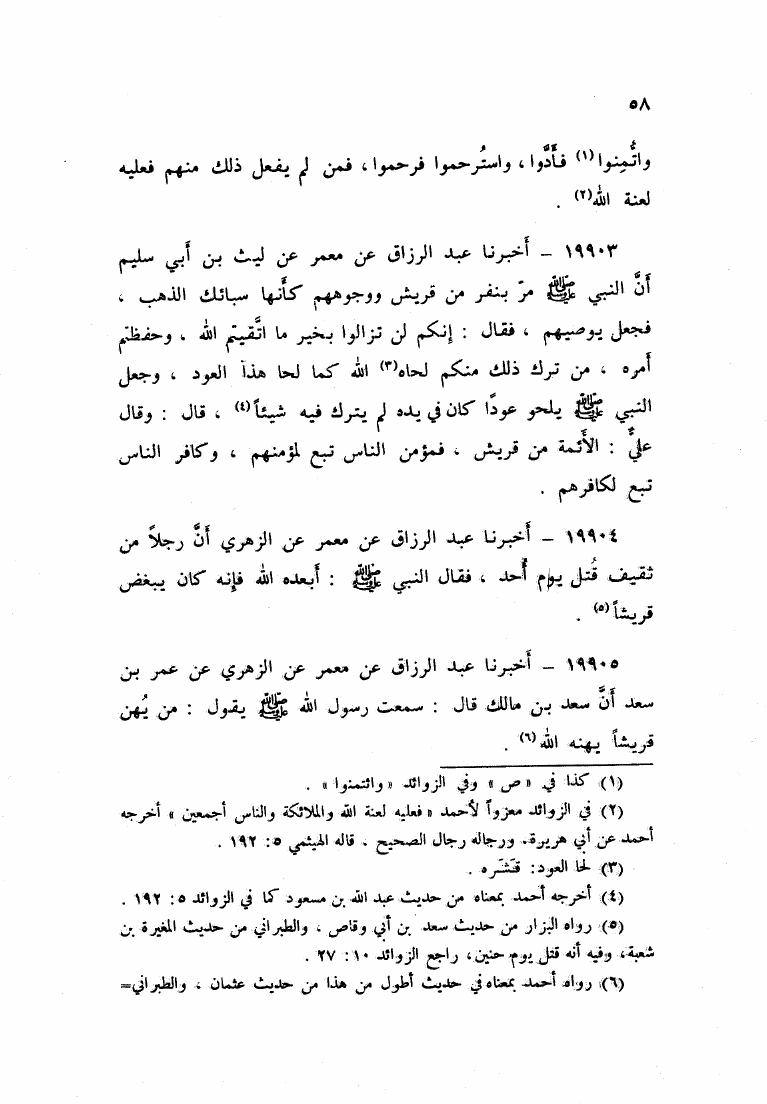 ٥٨
واتُّمِنوا(١) فأَدَّوا، واستُرحموا فرحموا، فمن لم يفعل ذلك منهم فعليه
لعنة الله(٢) .
١٩٩٠٣ – أَخبرنا عبد الرزاق عن معمر عن ليث بن أَبي سليم
أَنَّ النبي ﷺ مرّ بنفر من قريش ووجوههم كأَنها سبائك الذهب ،
فجعل يوصيهم ، فقال : إنكم لن تزالوا بخير ما اتَّقيتم الله ، وحفظتم
أَمره ، من ترك ذلك منكم لحاه(٣) الله كما لحا هذا العود ، وجعل
النبي ﷺ يلحو عودًا كان في يده لم يترك فيه شيئاً(٤) ، قال : وقال
عليٌّ : الأَئمة من قريش ، فمؤمن الناس تبع لمؤمنهم ، وكافر الناس
تبع لكافرهم .
١٩٩٠٤ – أَخبرنا عبد الرزاق عن معمر عن الزهري أَنَّ رجلاً من
ثقيف قُتل يوم أُحد ، فقال النبي ﷺ : أَبعده الله فإنه كان يبغض
قريشاً(٥) .
١٩٩٠٥ – أَخبرنا عبد الرزاق عن معمر عن الزهري عن عمر بن
سعد أَنَّ سعد بن مالك قال : سمعت رسول الله ﷺ يقول : من يُهن
قريشاً يهنه الله(٦) .
(١) كذا في « ص » وفي الزوائد « وائتمنوا » .
(٢) في الزوائد معزواً لأحمد « فعليه لعنة الله والملائكة والناس أجمعين » أخرجه
أحمد عن أبي هريرة، ورجاله رجال الصحيح ، قاله الهيثمي ٥: ١٩٢ .
(٣) لحا العود: قَشَّره .
(٤) أخرجه أحمد بمعناه من حديث عبد الله بن مسعود كما في الزوائد ٥: ١٩٢ .
(٥) رواه البزار من حديث سعد بن أبي وقاص ، والطبراني من حديث المغيرة بن
شعبة، وفيه أنه قتل يوم حنين، راجع الزوائد ١٠: ٢٧ .
(٦) رواه أحمد بمعناه في حديث أطول من هذا من حديث عثمان ، والطبراني=